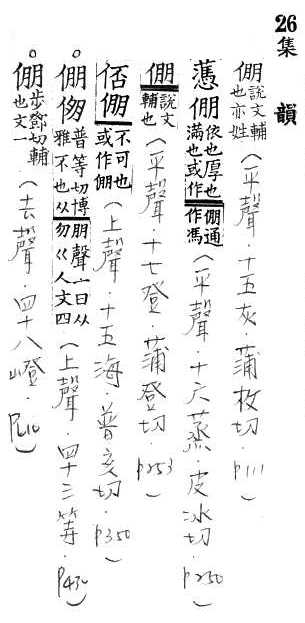 26 集韻
倗 說文輔也亦姓（平聲．十五灰．蒲枚切．p111）
憑倗 依也厚也滿也或作倗通作馮（平聲．十六蒸．皮冰切．p250）
倗 說文輔也（平聲．十七登．蒲登切．p253）
俖倗 不可也或作倗（上聲．十五海．普亥切．p350）
。倗㑂 普等切博雅不也从朋聲一曰从勿巜人文四（上聲．四十三等．p430）
。倗 步鄧切輔也文一（去聲．四十八嶝．p610）